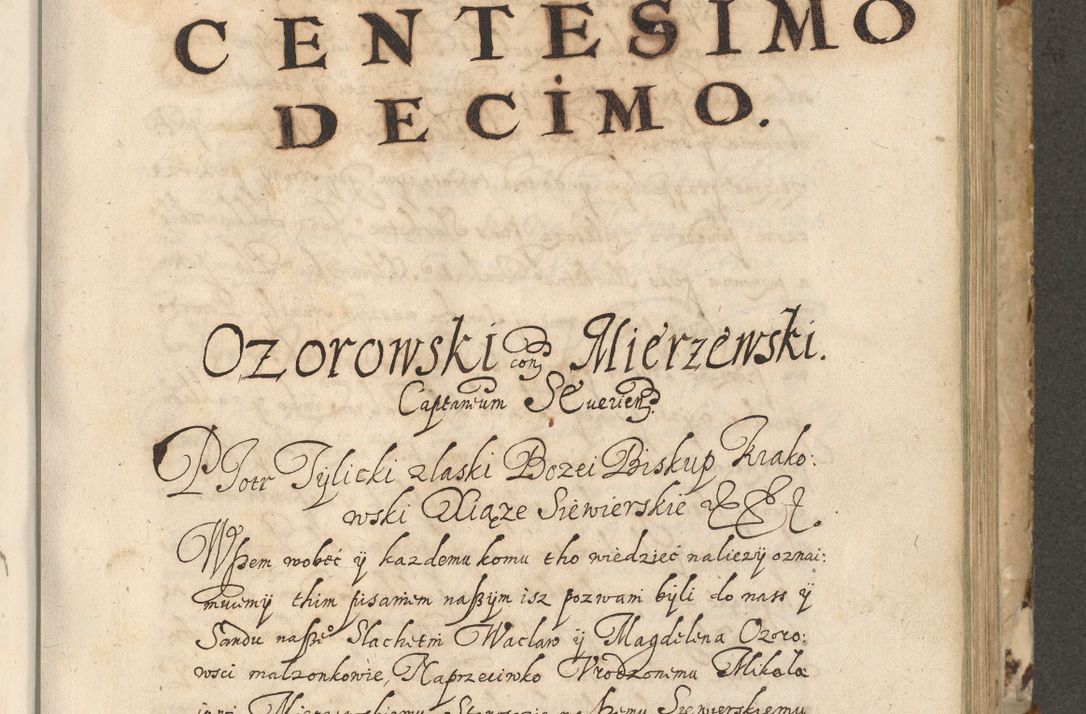 CENTESIMO
DECIMO.
Ozorowski con Mierzewski.
Captaneum Seuerien
Piotr Tylicki z laski Bozei Biskup Krako:
wski Xiąze Siewierskie
Wßem wobec ÿ kazdemu komu tho wiedziec naliezÿ oznai:
muiemÿ thim pisaniem naßÿm isz pozwani bÿli do nass ÿ
Sandu naße° Slachetni Waclaw ÿ Magdelena Ozoro:
wsci malzonkowie, Naprzeciwko Vrodzonimu Mikola
iowi Mierzewskiemu Staroscie naßemu Siewierskiemu